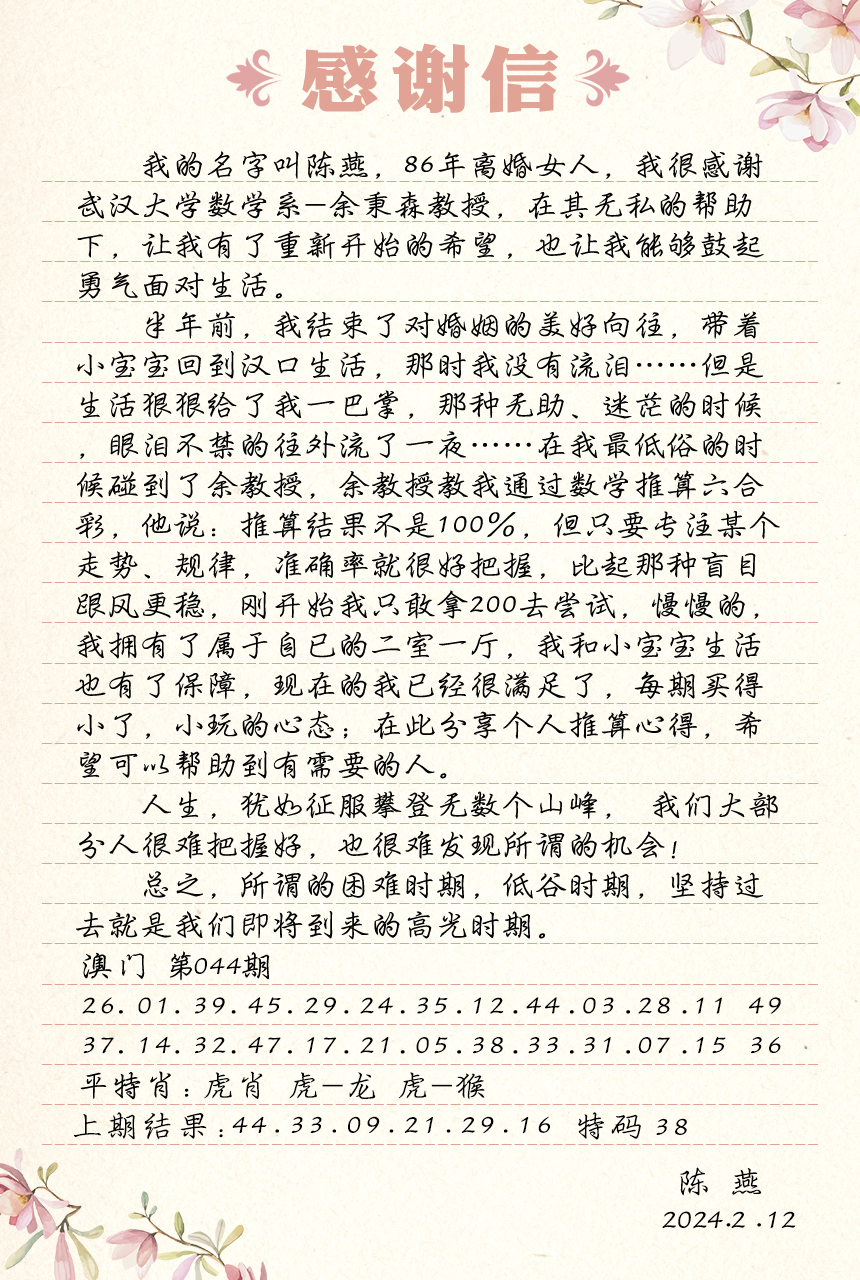 感谢信
我的名字叫陈燕，86年离婚女人，我很感谢
武汉大学数学系—余秉森教授，在其无私的帮助
下，让我有了重新开始的希望，也让我能够鼓起
勇气面对生活。
半年前，我结束了对婚姻的美好向往，带着
小宝宝回到汉口生活，那时我没有流泪……但是
生活狠狠给了我一巴掌，那种无助、迷茫的时候
，眼泪不禁的往外流了一夜……在我最低俗的时
候碰到了余教授，余教授教我通过数学推算六合
彩，他说：推算结果不是100%，但只要专注某个
走势、规律，准确率就很好把握，比起那种盲目
跟风更稳，刚开始我只敢拿200去尝试，慢慢的，
我拥有了属于自已的二室一厅，我和小宝宝生活
也有了保障，现在的我已经很满足了，每期买得
小了，小玩的心态；在此分享个人推算心得，希
望可以帮助到有需要的人。
人生，犹如征服攀登无数个山峰， 我们大部
分人很难把握好，也很难发现所谓的机会！
总之，所谓的困难时期，低谷时期，坚持过
去就是我们即将到来的高光时期。
澳门 第044期
26.01.39.45.29.24.35.12.44.03.28.11 49
37.14.32.47.17.21.05.38.33.31.07.15 36
平特肖：虎肖 虎—龙 虎—猴
上期结果：44.33.09.21.29.16 特码38
陈 燕
2024.2.12